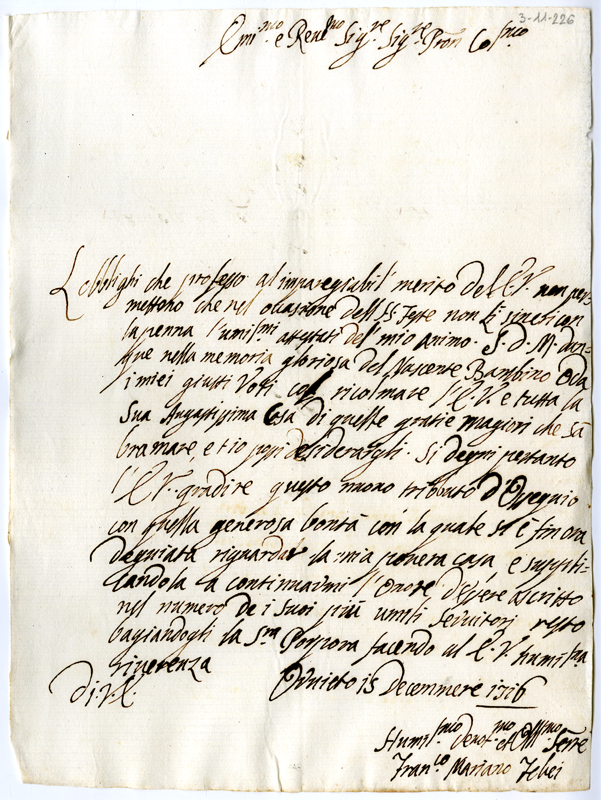 3-11-226
Emi.mo e Reu.mo Sig.re Sig.re Pron Co.mo
L'obblighi che professo al impareggiabil' merito del E.V. non per=
mettono che nel occasione dell' SS. Feste non li sinceri con
la penna l'umil.mi attestati del' mio animo. S.D.M. dun=
que nella memoria gloriosa del Nascente Bambino Oda
i miei giusti Voti col ricolmare l'E.V. e tutta la
Sua Augustissima Casa di quelle gratie magiori che sà
bramare, e t'io possi desiderargli. Si degni pertanto
l'E.V. gradire questo nuouo tributo d'Ossequio
con quella generosa bontà con la quale si è fin ora
degniata riguardar la mia pouera casa, e suppli=
candola a continuarmi l'Onore d'essere ascritto
nel numero de i suoi più umili seruitori resto
bagiandogli la S.ra Porpora facendo al E.V. humil.ma
riuerenza
Di V.E. Oruieto 15 Decemmere 1716
Humil.mo Deuot.mo et Obl.mo Serre
Fran.co Mariano Febei